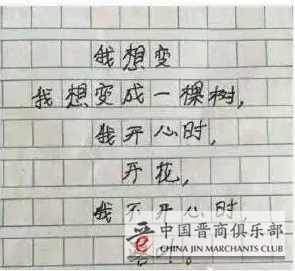 我想变
我想变成一棵树，
我开心时，
开花，
我不开心时，
晋e 中国晋商俱乐部
CHINA JIN MARCHANTS CLUB